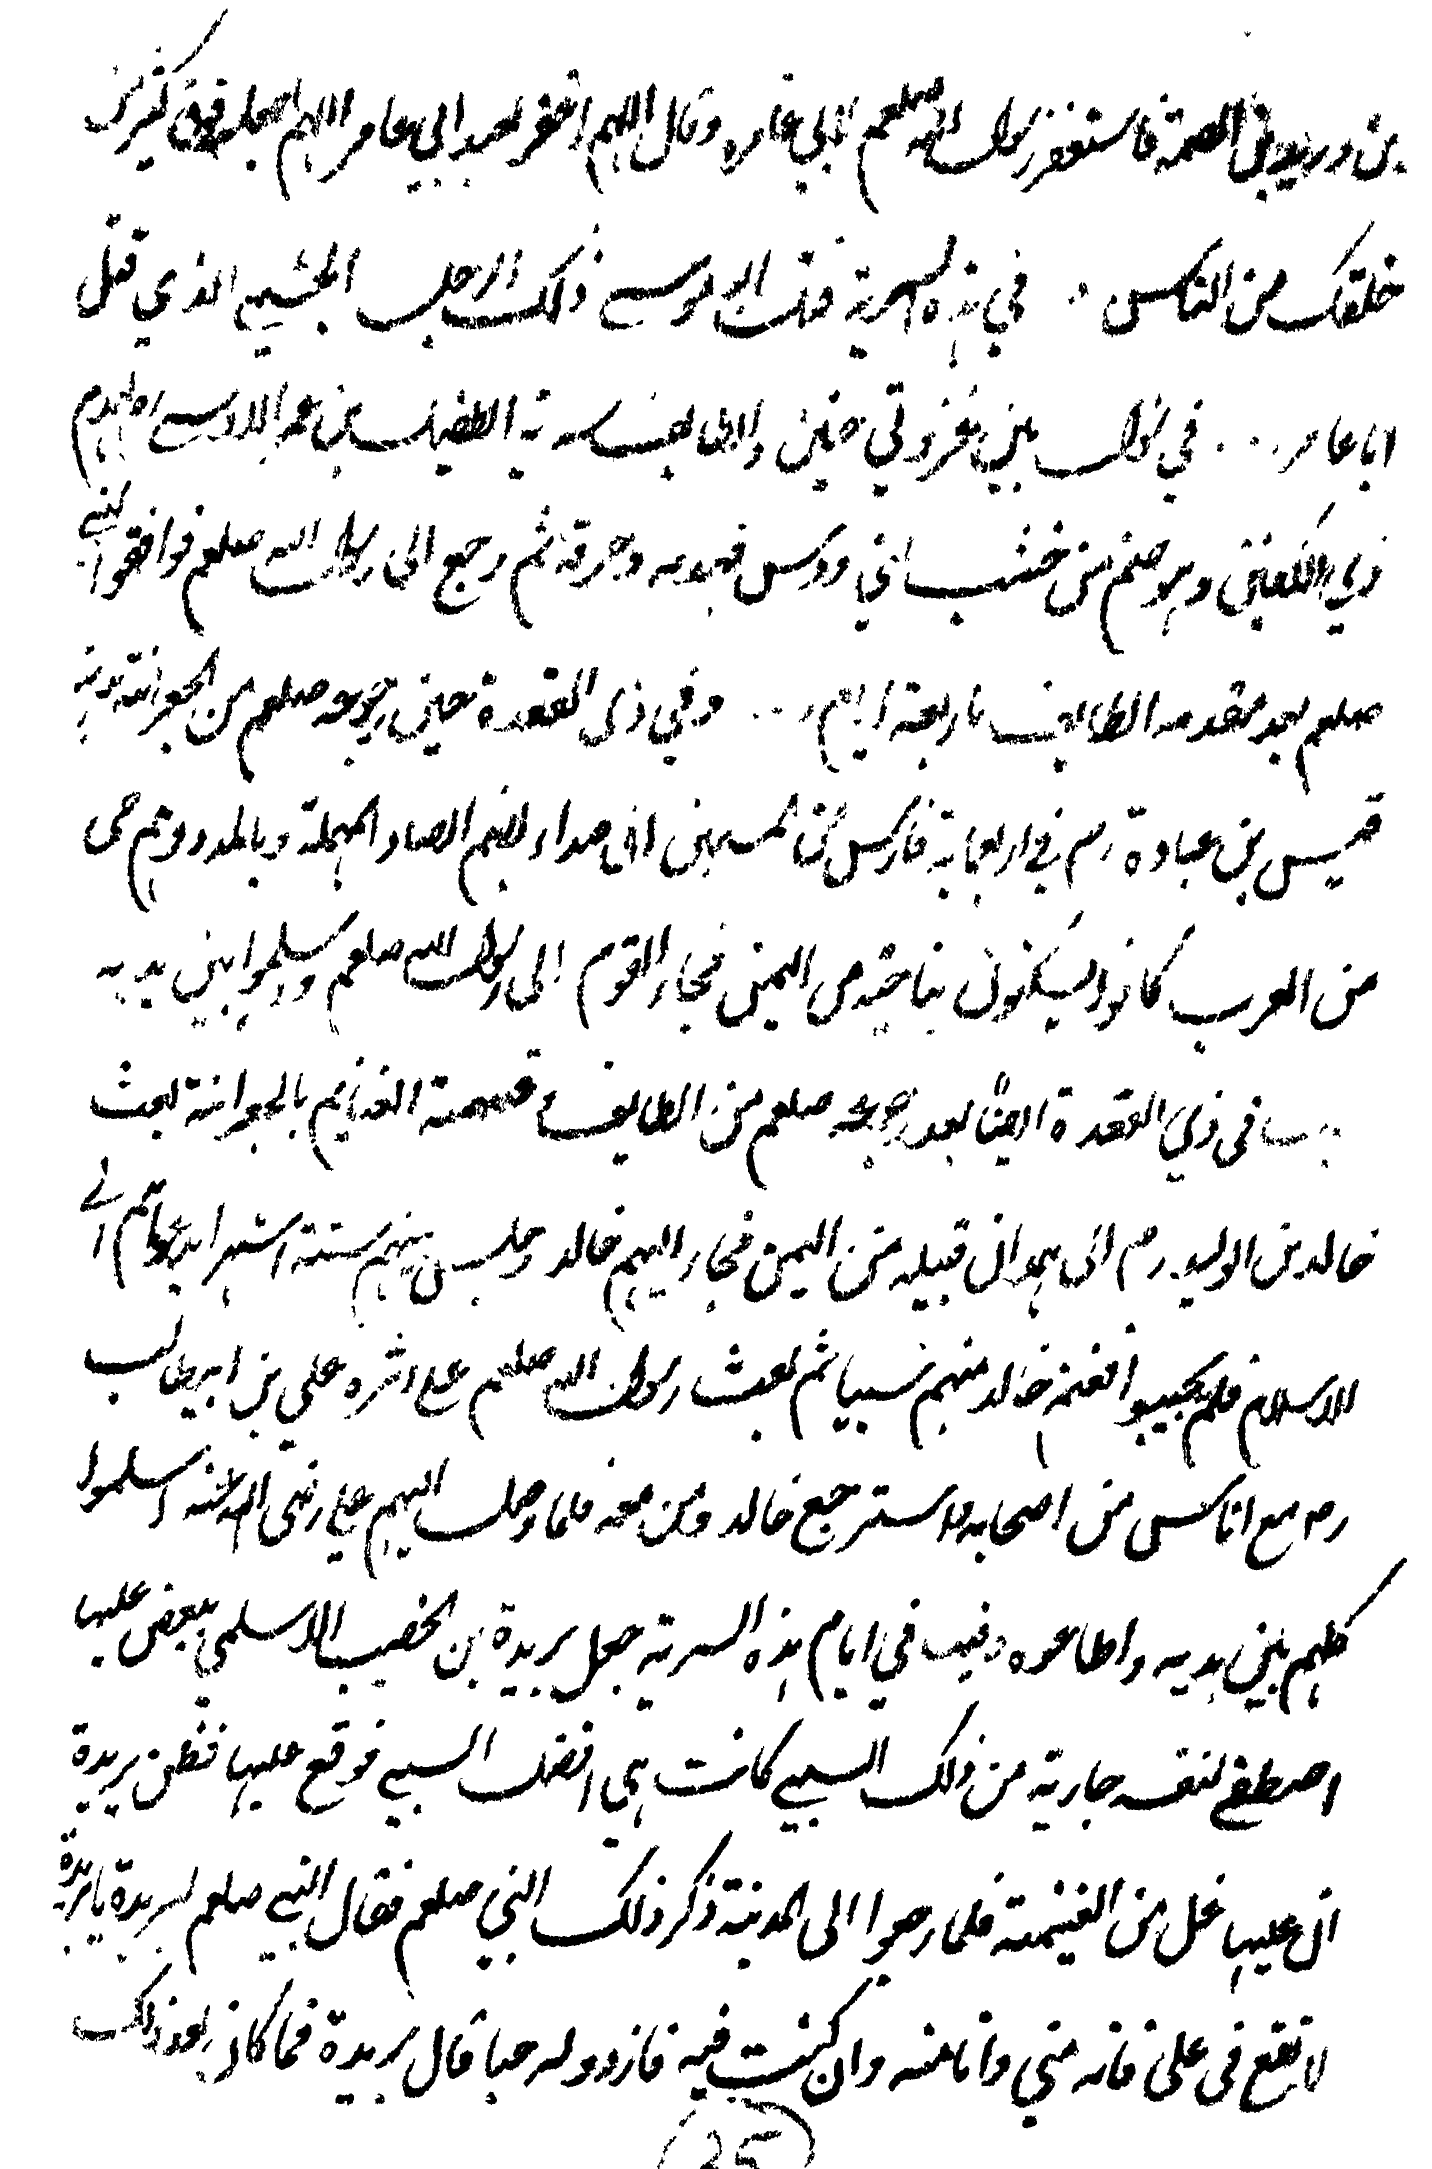 بن دريد بن الصمة فاستغفر رسول الله صلعم لابي عامر وقال اللهم اغفر لعبد ابي عامر اللهم اجعله فوق كثير من
خلقك من الناس ، في هذه السرية قتل ابو موسى ذلك الرجل الجشمي الذي قتل
ابا عامر ... في شوال بين غزوتي حنين والطايف سرية الطفيل بن عمرو الدوسي لهدم
ذي الكفين وهو صنم من خشب لبني دوس فهدمه وحرقه ثم رجع الى رسول الله صلعم فوافقوا النبي
صلعم بعد مقدمه الطايف باربعة ايام ... وفي ذي القعدة حين رجوعه صلعم من الجعرانة
قيس بن عبادة رم في اربعماية فارس من المسلمين الى صداء بضم الصاد المهملة وبالمد وهم حي
من العرب كانوا يسكنون بناحية من اليمن فجاء القوم الى رسول الله صلعم وسلموا بين يديه
في ذي القعدة ايضًا بعد رجوعه صلعم من الطايف وقسمة الغنايم بالجعرانة بعث
خالد بن الوليد رم الى همدان قبيلة من اليمن فجاء اليهم خالد وجلس بينهم ستة اشهر يدعوهم الى
الاسلام فلم يجيبوا فغنم خالد منهم سبيا ثم بعث رسول الله صلعم على اثره علي بن ابيطالب
رم مع اناس من اصحابه لاسترجع خالد ومن معه فلما وصل اليهم علي رضى الله عنه اسلموا
كلهم بين يديه واطاعوه وقيل في ايام هذه السرية جعل بريدة بن الخصيب الاسلمي يبغض عليا
اصطفى لنفسه جارية من ذلك السبي كانت هي افضل السبي فوقع عليها فظن بريدة
ان عليها غل من الغنيمة فلما رجعوا الى المدينة ذكر ذلك النبي صلعم فقال النبي صلعم لبريدة يا بريدة
لا تقع في علي فانه مني وانا منه وان كنت فيه فازدد له حبا قال بريدة فما كان بعد ذلك